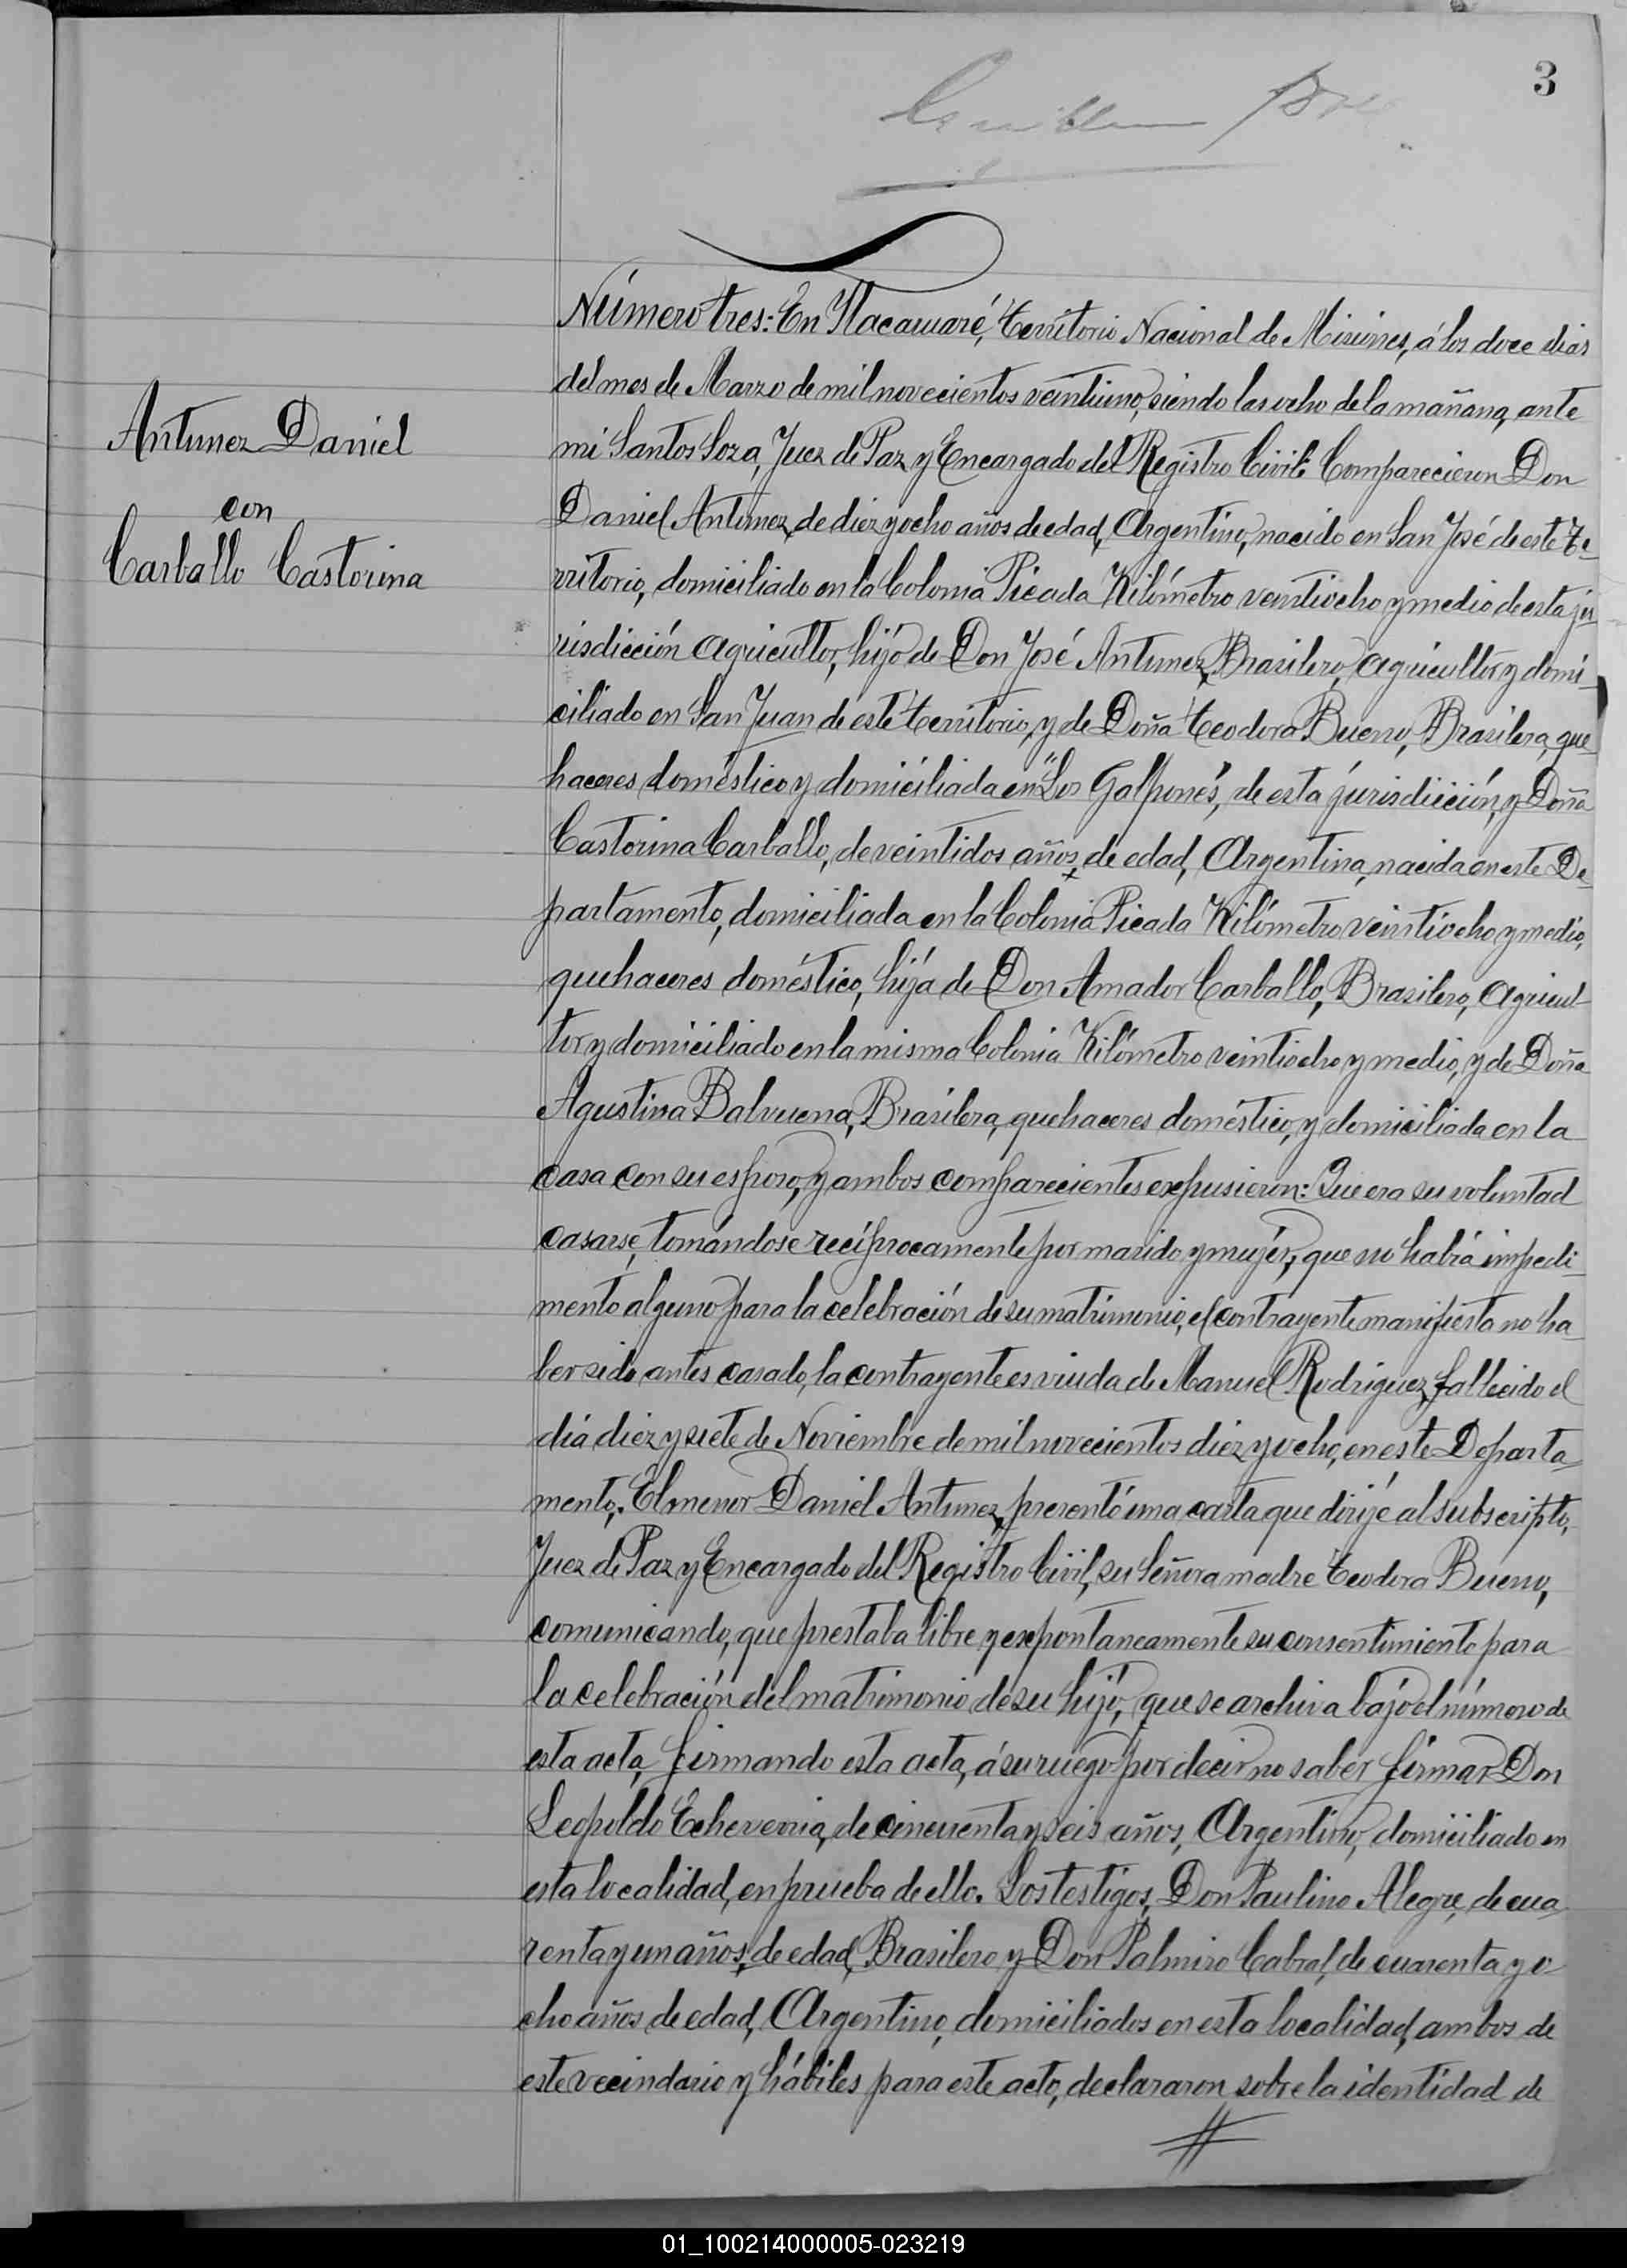 3
Número tres: En Itacaruaré, Territorio Nacional de Misiones, á los doce dias
del mes de Marzo de mil novecientos veintiuno, siendo las ocho de la mañana, ante
mi Santos Soza, Juez de Paz y Encargado del Registro Civil: Comparecieron Don
Antunez Daniel
con
Carballo Castorina
Daniel Antunez, de diez y ocho años de edad, Argentino, nacido en San José de este Te-
rritorio, domiciliado en la Colonia Picada Kilómetro veintiocho y medio de esta ju-
risdicción agricultor, hijo de Don José Antunez, Brasilero, agricultor y domi-
ciliado en San Juan de este territorio, y de Doña Teodora Bueno, Brasilera, que-
haceres doméstico y domiciliada en "Los Galpones", de esta jurisdicción, y Doña
Castorina Carballo, de veintidos años, de edad, Argentina, nacida en este De-
partamento, domiciliada en la Colonia Picada Kilómetro veintiocho y medio,
quehaceres doméstico, hija de Don Amador Carballo, Brasilero, agricul-
tor y domiciliado en la misma Colonia Kilómetro veintiocho y medio, y de Doña
Agustina Balvuena, Brasilera, quehaceres doméstico, y domiciliada en la
casa con su esposo, y ambos comparecientes expusieron: Que era su voluntad
casarse, tomándose recíprocamente por marido y mujer, que no habia impedi-
mento alguno para la celebración de su matrimonio, el contrayente manifiesta no ha-
ber sido antes casado, la contrayente es viuda de Manuel Rodriguez, fallecido el
dia diez y siete de Noviembre de mil novecientos diez y ocho, en este Departa-
mento. El menor Daniel Antunez, presentó una carta que dirije al subscripto,
Juez de Paz y Encargado del Registro Civil, su Señora madre Teodora Bueno,
comunicando, que prestaba libre y expontaneamente su consentimiento para
la celebración del matrimonio de su hijo, que se archiva bajo el número de
esta acta, firmando esta acta, á su ruego por decir no saber firmar Don
Leopoldo Echeverria, de cincuenta y seis años, Argentino, domiciliado en
esta localidad, en prueba de ello. Los testigos, Don Paulino Alegre, de cua-
renta y un años, de edad, Brasilero y Don Palmiro Cabral, de cuarenta y o-
cho años de edad, Argentino, domiciliados en esta localidad, ambos de
este vecindario y hábiles para este acto, declararon sobre la identidad de
01_100214000005-023219